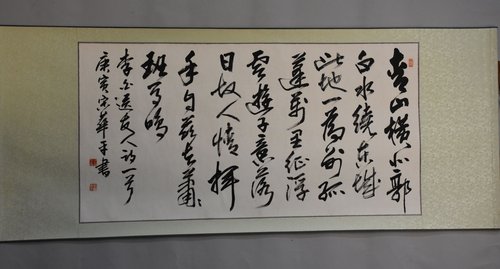 青山橫北郭
白水繞東城
此地一為别孤
蓬萬里征浮
雲遊子意落
日故人情揮
手自茲去蕭〻
班馬鳴
李白送友人詩一首
庚寅宋華平書